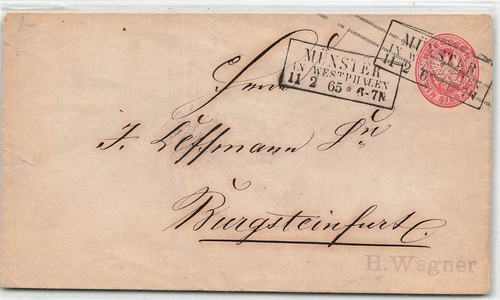 MÜNSTER
IN WESTPHALEN
11 2 65 * 6-7N
MÜNSTER
11 2 6
Herrn
J. Leffmann Sn
Burgsteinfurt
H. Wagner